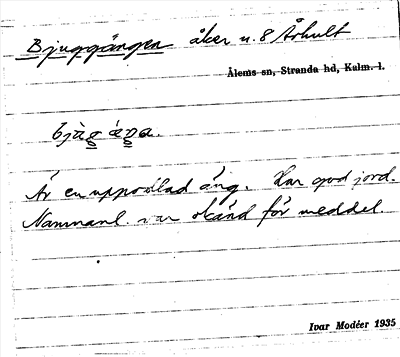 Bjuggängen åker u. 8 Århult
Ålems sn, Stranda hd, Kalm. l.
Är en uppodlad äng. Har god jord.
Namnanl. var okänd för meddel.
Ivar Modéer 1935